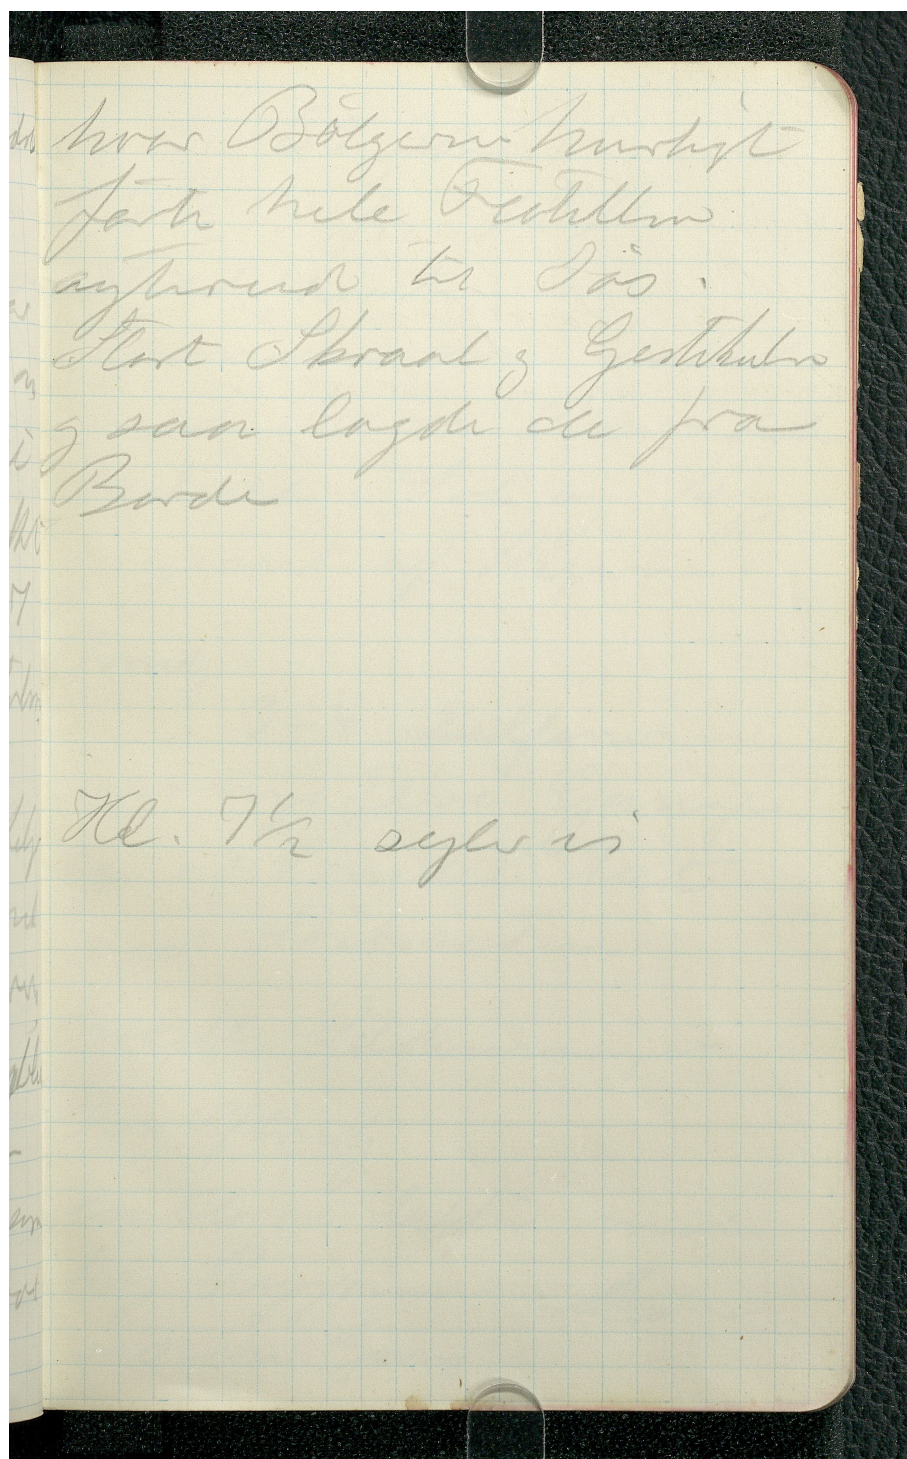 hvor Bølgerne hurtigt
førte hele Flotillen
agterud til Søs.
Stort Skraal og Gestikulren
og saa lagde de fra
Borde
Kl. 7½ sejler vi